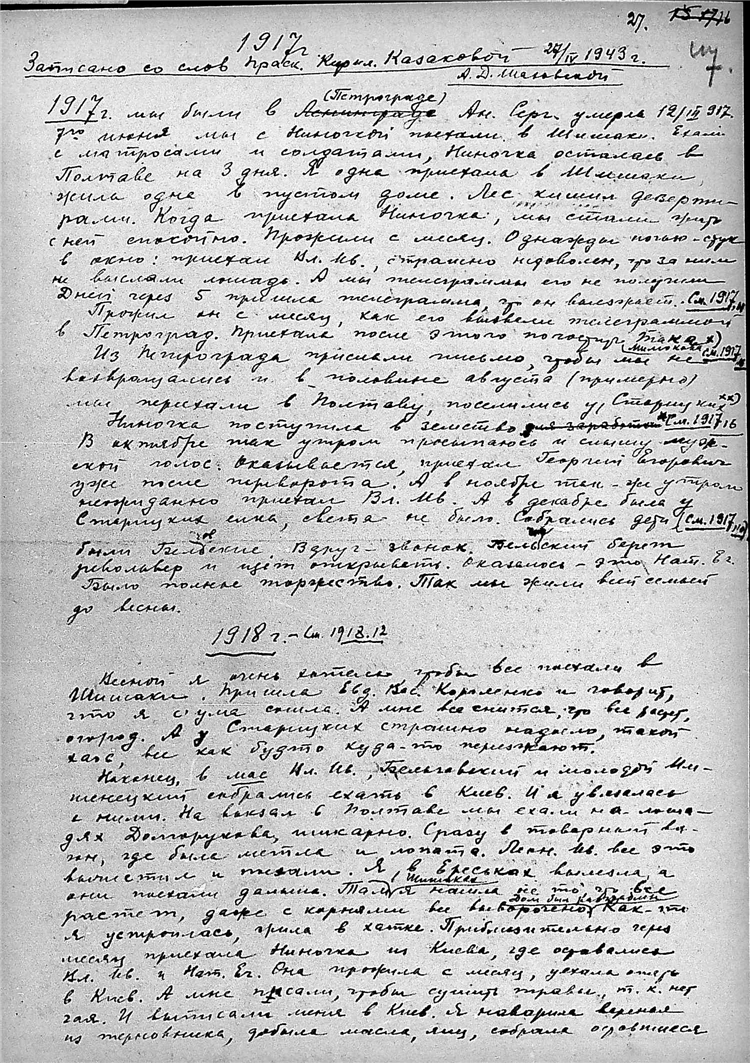 27.
1917 г
Записано со слов Праск. Кирил. Казаковой 27/IV 1943 г.
А. Д. Шаховской
(Петрограде)
1917 г. мы были в Ленинграде Ан. Серг. умерла 12/III 917.
7го июня мы с Ниночкой поехали в Шишаки. Ехали
с матросами и солдатами, Ниночка осталась в
Полтаве на 3 дня. Я одна приехала в Шишаки,
жила одне в пустом доме. Лес кишил дезерти-
рами. Когда приехала Ниночка, мы стали жить
с ней спокойно. Прожили с месяц. Однажды ночью – стук
в окно: приехал Вл. Ив., страшно недоволен, что за ним
не выслали лошадь. А мы телеграммы его не получили
Дней через 5 пришла телеграмма, что он выезжает. См. 1917,
Прожил он с месяц, как его вызвали телеграммой
в Петроград. Приехала после этого погостить Така х)
Из Петрограда прислали письмо, чтобы мы не см. 1917
возвращались и в половине августа (примерно)
мы переехали в Полтаву, поселились у Старицких хх)
Ниночка поступила в земство для заработка См. 1917,16
В октябре так утром просыпаюсь и слышу муж-
ской голос. Оказывается, приехал Георгий Егорович
уже после переворота. А в ноябре так-же утром
неожиданно приехал Вл. Ив. А в декабре была у
Старицких елка, света не было. Собрались дети (см. 1917,
были Бельские. Вдруг – звонок. Бельский берет
револьвер и идет открывать. Оказалось – это Нат. Ег.
Было полное торжество. Так мы жили всей семьей
до весны.
1918 г. – См. 1918.12
Весной я очень хотела чтобы все поехали в
Шишаки. Пришла Евд. Вас. Короленко и говорит,
что я с ума сошла. А мне все снится, что все растет,
огород. А у Старицких страшно надоело, такой
хаос, все как будто куда-то переезжают.
Наконец, в мае Вл. Ив., Бельговский и молодой Ми-
шенецкий собрались ехать в Киев. И я увязалась
с ними. На вокзал в Полтаве мы ехали на лоша-
дях Долгорукова, шикарно. Сразу в товарный ва-
гон, где была метла и лопата. Леон. Ив. все это
вычистил и поехали. Я в Ереськах вылезла, а
они поехали дальше. Там (в Шишаках) я нашла не то, что все
растет, даже с корнями все выворочено. Дом был Как-то
я устроилась, жила в хатке. Приблизительно через
месяц приехала Ниночка из Киева, где оставались
Вл. Ив. и Нат. Ег. Она прожила с месяц, уехала опять
в Киев. А мне писали, чтобы сушить травы, т. к. нет
чая. И выписали меня в Киев. Я наварила варенья
из терновника, добыла масла, яиц, собрала оставшиеся